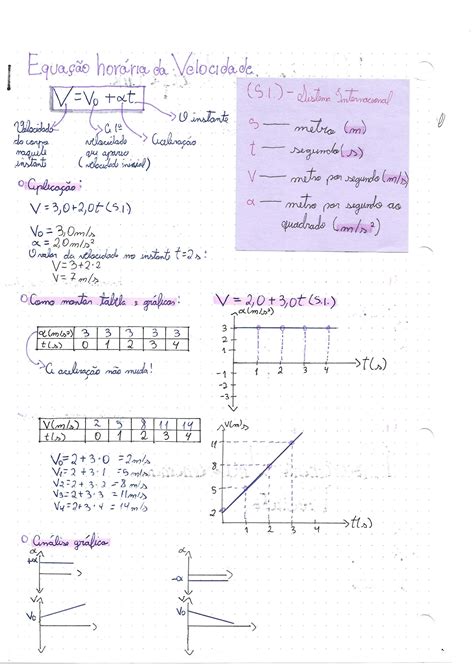 Equação horária da Velocidade
V = V₀ + αt
O instante
Velocidade do corpo naquele instante
É a 1ª velocidade que aparece (velocidade inicial)
Aceleração
(S.I.) - Sistema Internacional
S — metro (m)
t — segundo (s)
V — metro por segundo (m/s)
α — metro por segundo ao quadrado (m/s²)
Aplicação:
V = 3,0 + 2,0t (S.I.)
V₀ = 3,0 m/s
α = 2,0 m/s²
O valor da velocidade no instante t = 2s:
V = 3 + 2 · 2
V = 7 m/s
Como montar tabela e gráficos:
V = 2,0 + 3,0t (S.I.)
α(m/s²) 3 3 3 3 3
t(s) 0 1 2 3 4
A aceleração não muda!
α(m/s²)
3
2
1
-1
-2
-3
1 2 3 4
t(s)
V(m/s) 2 5 8 11 14
t(s) 0 1 2 3 4
V₀ = 2 + 3 · 0 = 2 m/s
V₁ = 2 + 3 · 1 = 5 m/s
V₂ = 2 + 3 · 2 = 8 m/s
V₃ = 2 + 3 · 3 = 11 m/s
V₄ = 2 + 3 · 4 = 14 m/s
V(m/s)
11
8
5
2
1 2 3 4
t(s)
Análise gráfica
α
+α
α
-α
V
V₀
V
V₀